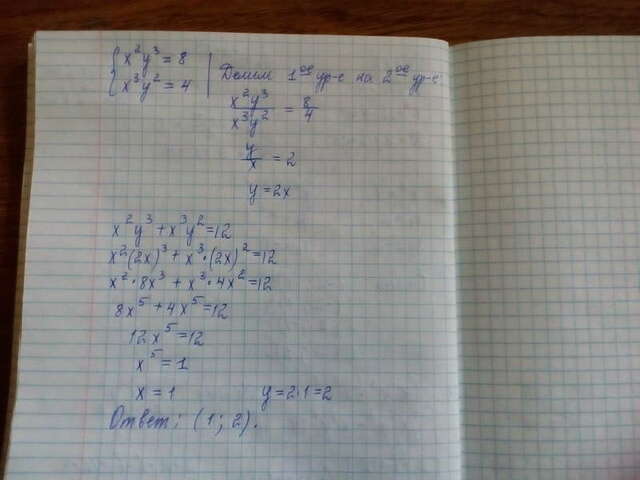 x²y³ = 8
x³y² = 4
Делим 1ое ур-е на 2ое ур-е
x²y³/x³y² = 8/4
y/x = 2
y = 2x
x²y³ + x³y² = 12
x²(2x)³ + x³·(2x)² = 12
x²·8x³ + x³·4x² = 12
8x⁵ + 4x⁵ = 12
12x⁵ = 12
x⁵ = 1
x = 1 y = 2·1 = 2
Ответ: (1; 2).